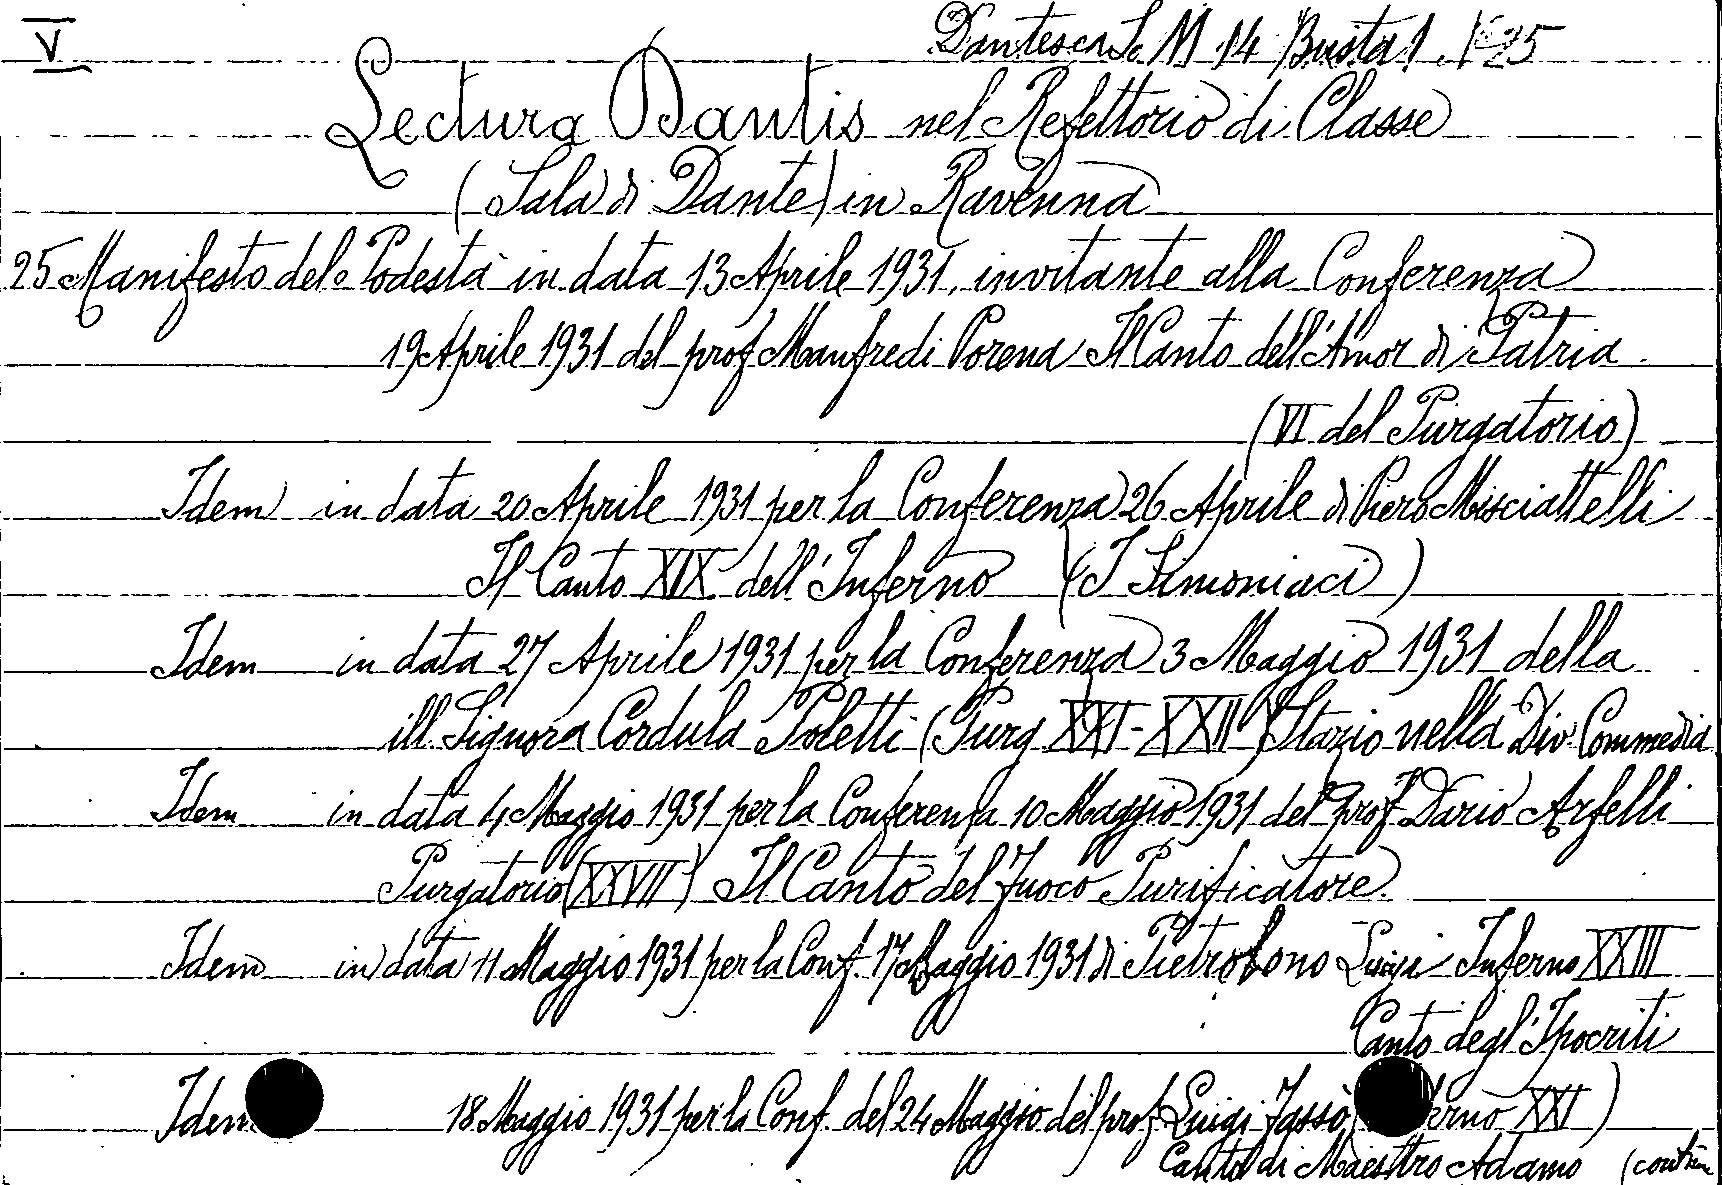 V
Dantesca S. M 14 Busta 1. N 25
Lectura Dantis nel Refettorio di Classe
(Sala di Dante) in Ravenna
25 Manifesto del Podestà in data 13 Aprile 1931, invitante alla Conferenza
19 Aprile 1931 del prof Manfredi Porena Il Canto dell'Amor di Patria.
(VI del Purgatorio)
Idem in data 20 Aprile 1931 per la Conferenza 26 Aprile di Piero Misciattelli
Il Canto XIX dell'Inferno (I Simoniaci)
Idem in data 27 Aprile 1931 per la Conferenza 3 Maggio 1931 della
ill. Signora Cordula Poletti (Purg XXI-XXII) Stazio nella Div. Commedia
Idem in data 4 Maggio 1931 per la Conferenza 10 Maggio 1931 del prof. Dario Arfelli
Purgatorio (XXVII) Il Canto del fuoco Purificatore.
Idem in data 11 Maggio 1931 per la Conf. 17 Maggio 1931 di Pietrobono Luigi Inferno XXIII
Canto degl'Ipocriti
Idem 18 Maggio 1931 per la Conf. del 24 Maggio del prof. Luigi Fassò erno XXI)
Canto di Maestro Adamo (contin